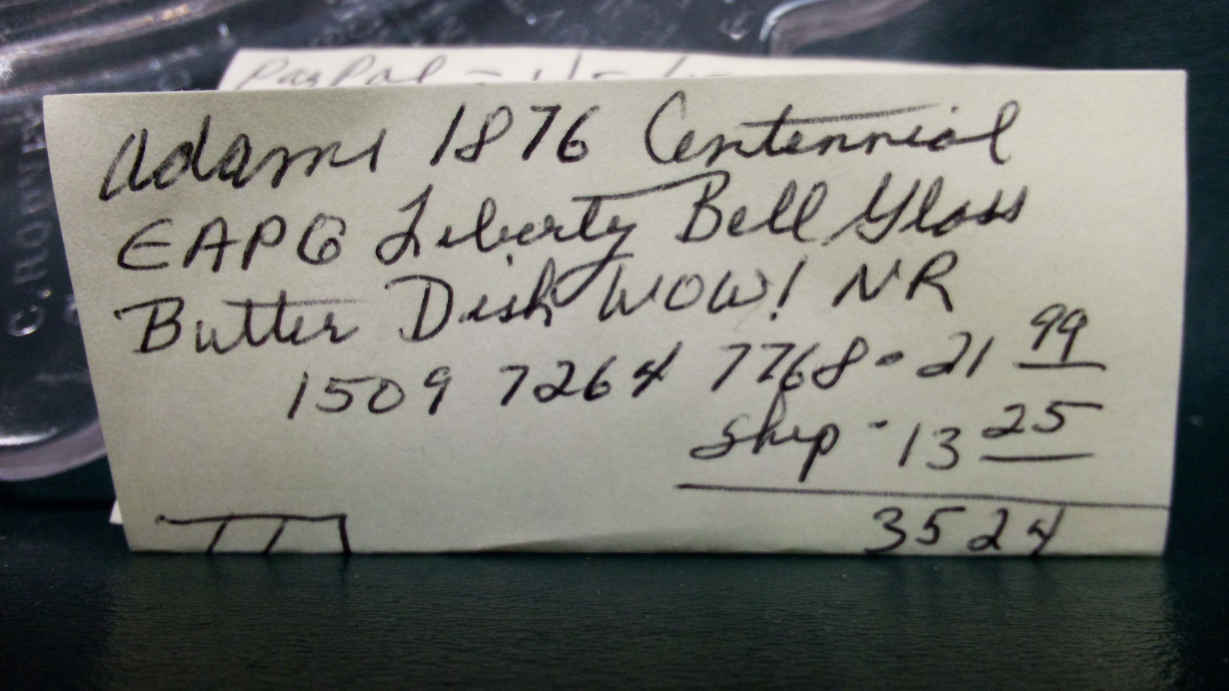 PayPal -
Adams 1876 Centennial
EAPG Liberty Bell Glass
Butter Dish WOW! NR
1509 7264 7768 - 21 99
Ship - 13 25
3524